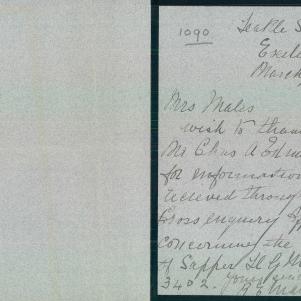 1090
Exete
March
Mrs Males
wish to than
Mr Chas A Edm
for information
recieved through
Cross enquiry
concerning the
of Sapper H G
3402.